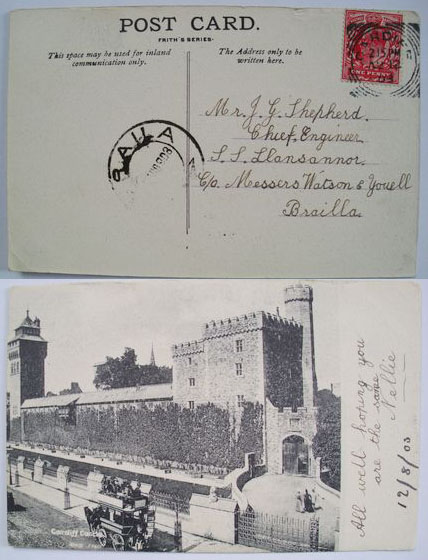 POST CARD.
FRITH'S SERIES.
This space may be used for inland
communication only.
The Address only to be
written here.
ONE PENNY
2 15 PM
Mr. J. G. Shepherd.
Chief Engineer
S.S. Llansannor.
C/o Messers Watson & Youell
Brailla.
Cardiff Castle
All well hoping you
are the same
Nellie
12/8/03